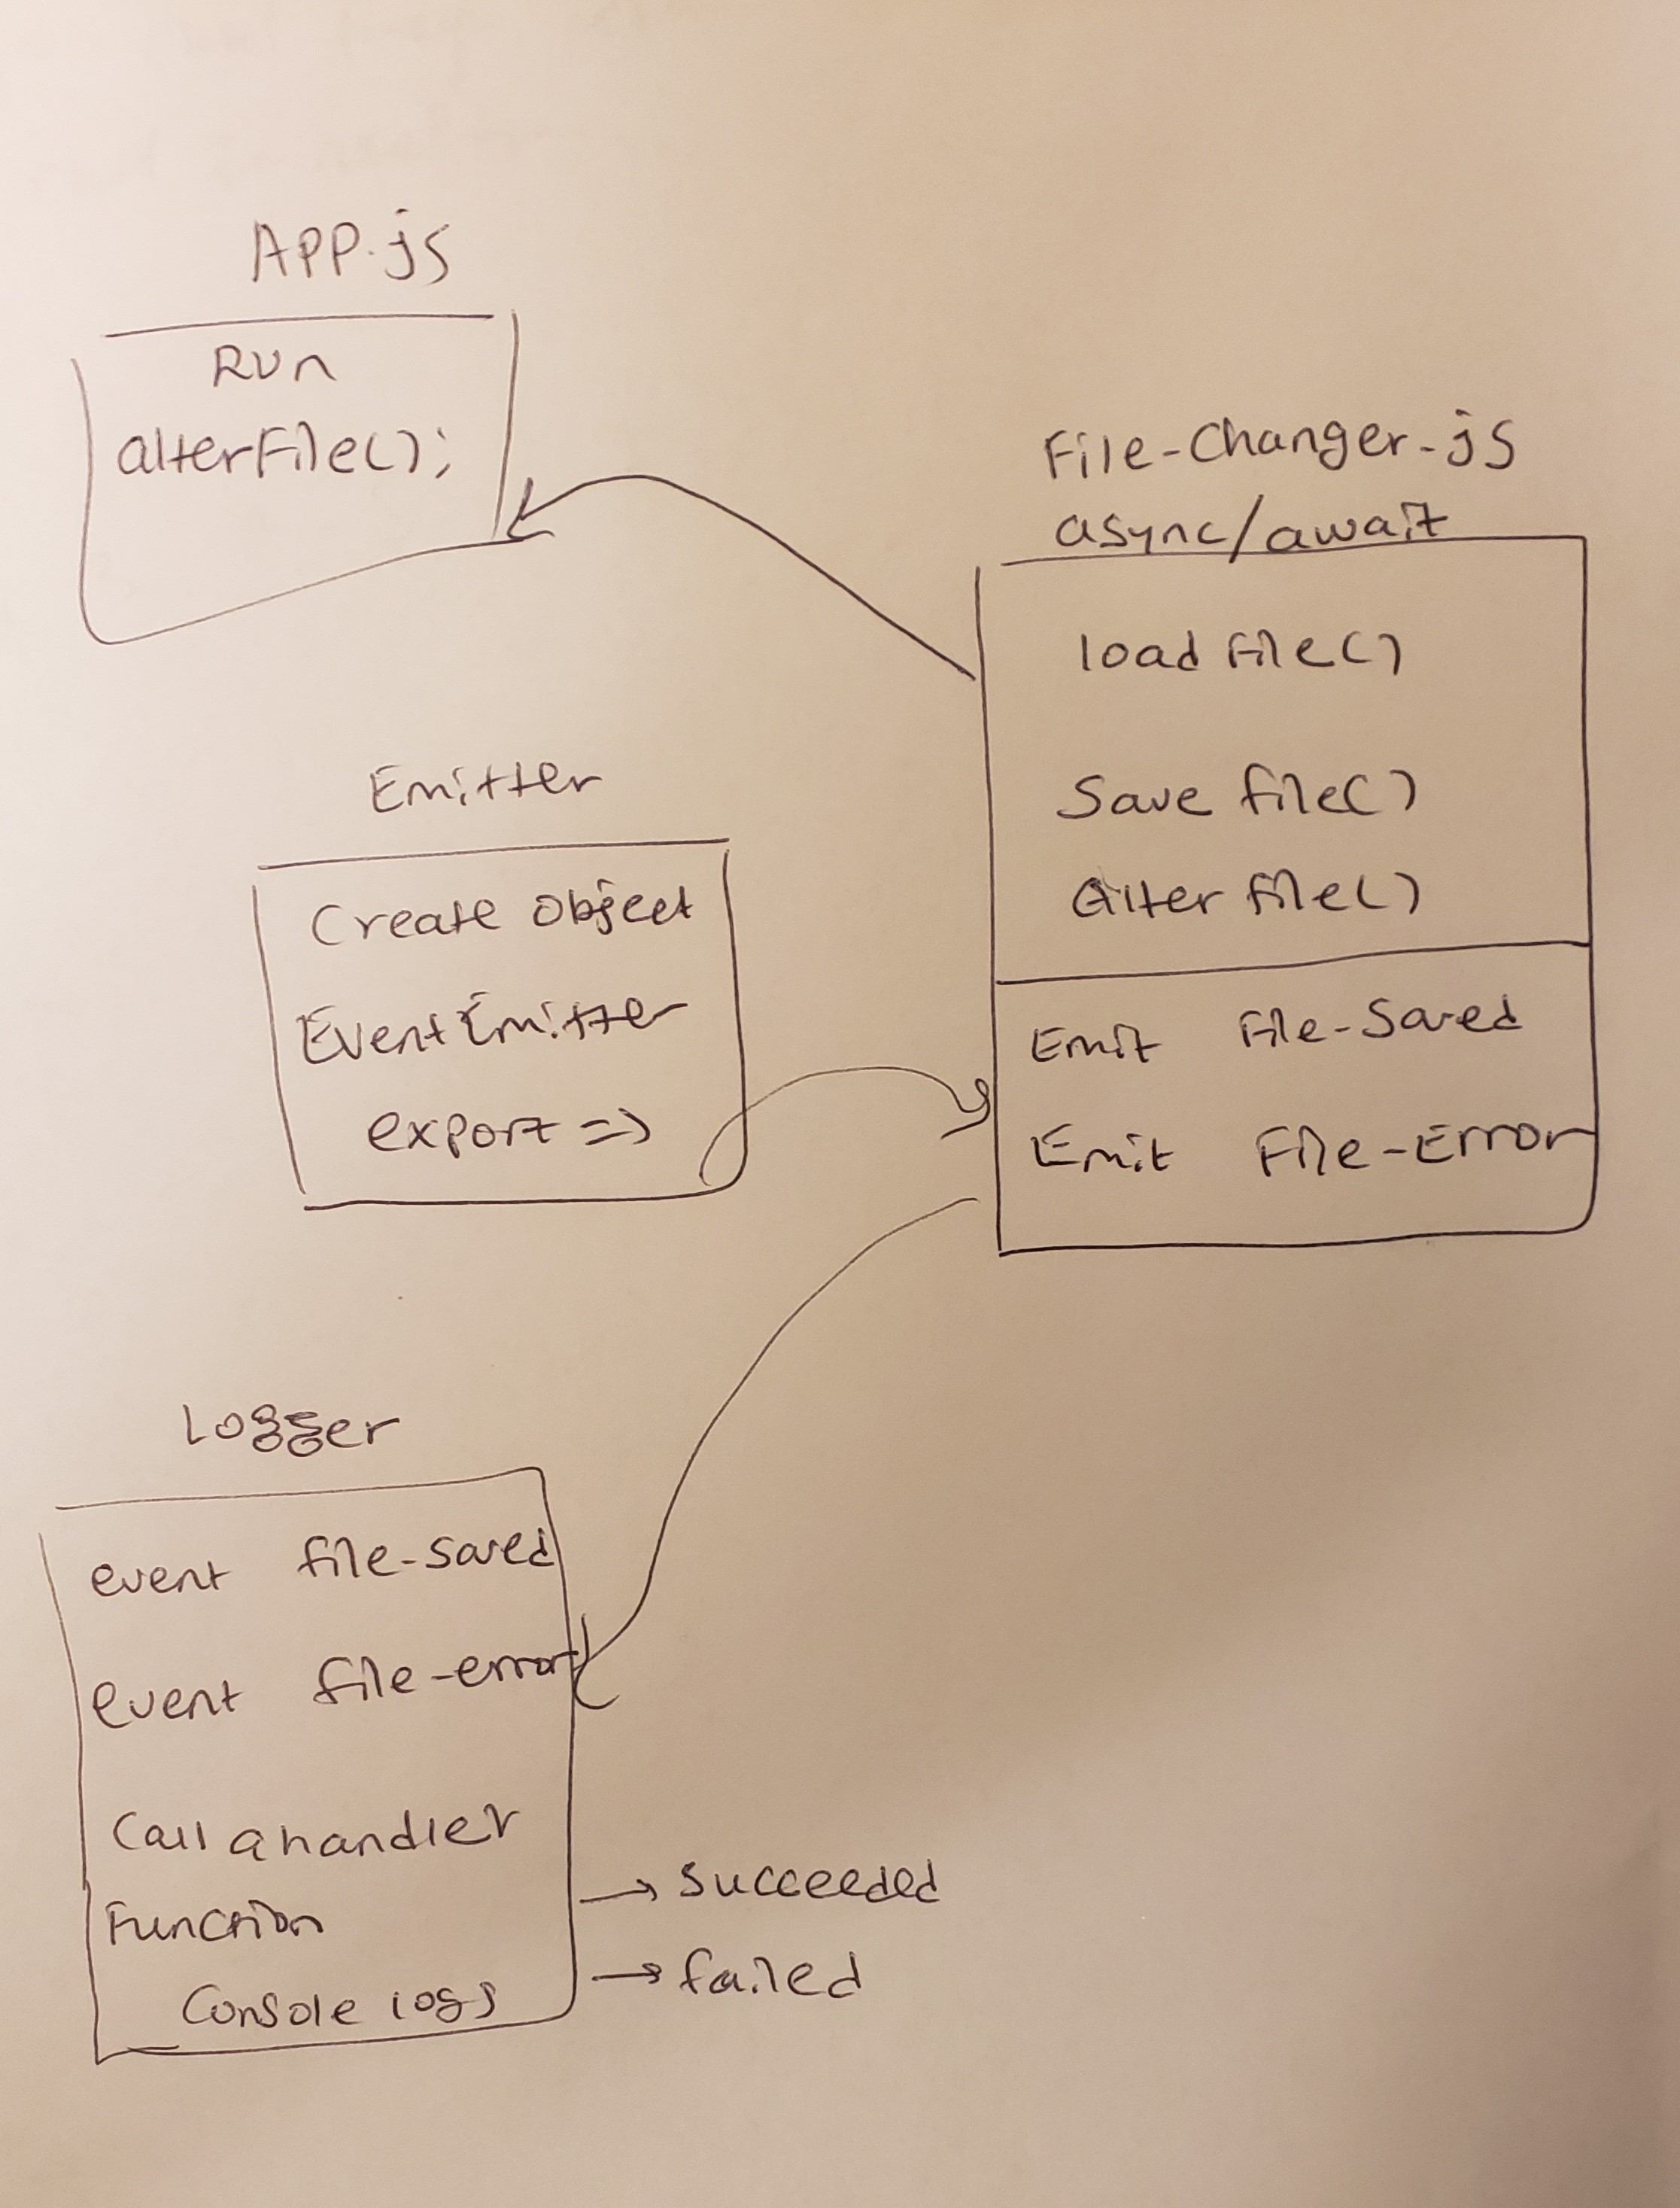 APP.js
Run
alterFile();
File-Changer.js
async/await
load file()
Save file()
Alter file()
Emit File-Saved
Emit File-Error
Emitter
Create object
Event Emitter
export =>
Logger
event file-saved
event file-error
Call a handler
Function
Console logs
→ Succeeded
→ failed